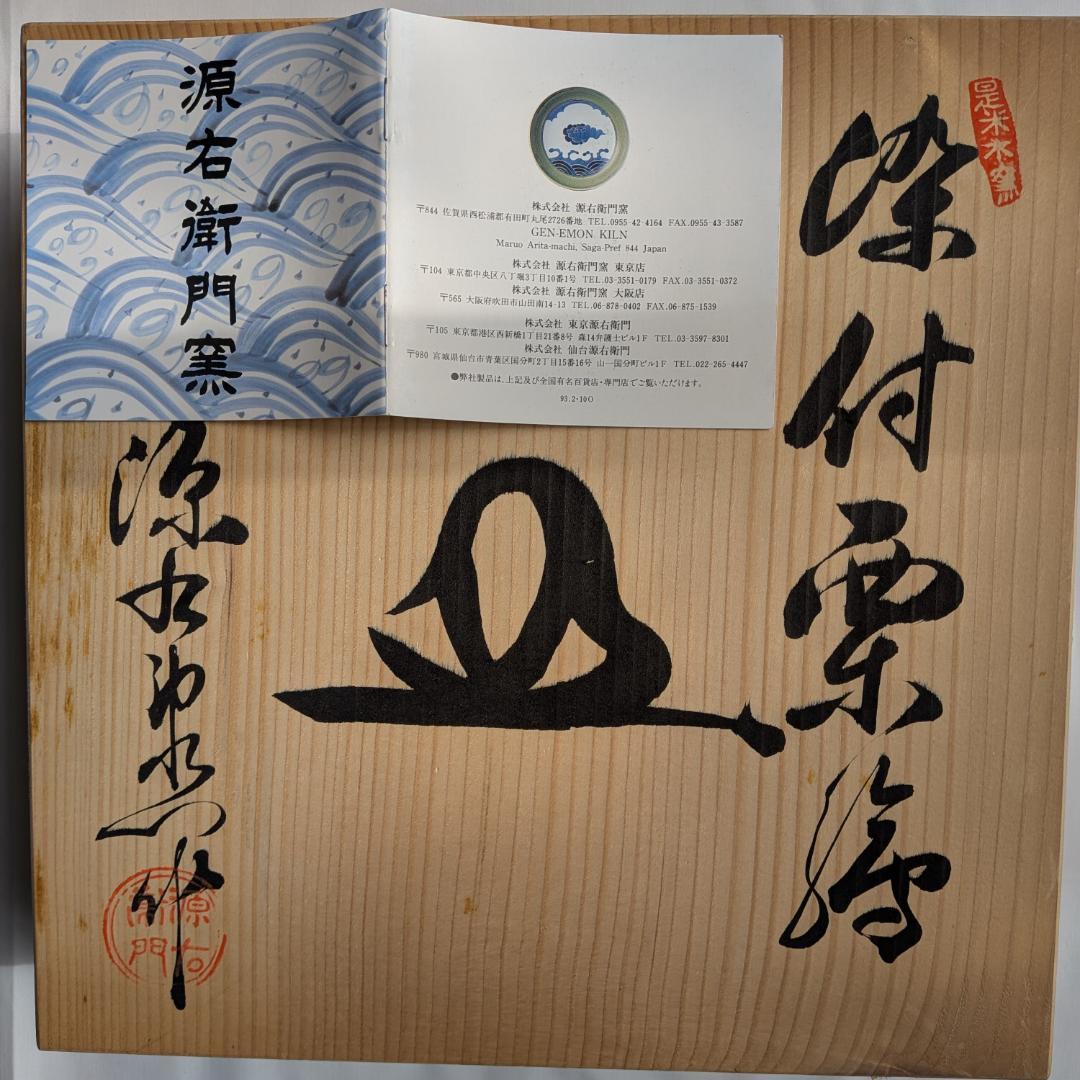 源右衛門窯
株式会社 源右衛門窯
〒844 佐賀県西松浦郡有田町丸尾2726番地 TEL.0955-42-4164 FAX.0955-43-3587
GEN-EMON KILN
Maruo Arita-machi, Saga-Pref 844 Japan
株式会社 源右衛門窯 東京店
〒104 東京都中央区八丁堀3丁目10番1号 TEL.03-3551-0179 FAX.03-3551-0372
株式会社 源右衛門窯 大阪店
〒565 大阪府吹田市山田南14-13 TEL.06-878-0402 FAX.06-875-1539
株式会社 東京源右衛門
〒105 東京都港区西新橋1丁目21番8号 森14弁護士ビル1F TEL.03-3597-8301
株式会社 仙台源右衛門
〒980 宮城県仙台市青葉区国分町2丁目15番16号 山一国分町ビル1F TEL.022-265-4447
●弊社製品は、上記及び全国有名百貨店・専門店でご覧いただけます。
93.2・10○
染付栗
皿
源右衛門窯作
源右
衛門